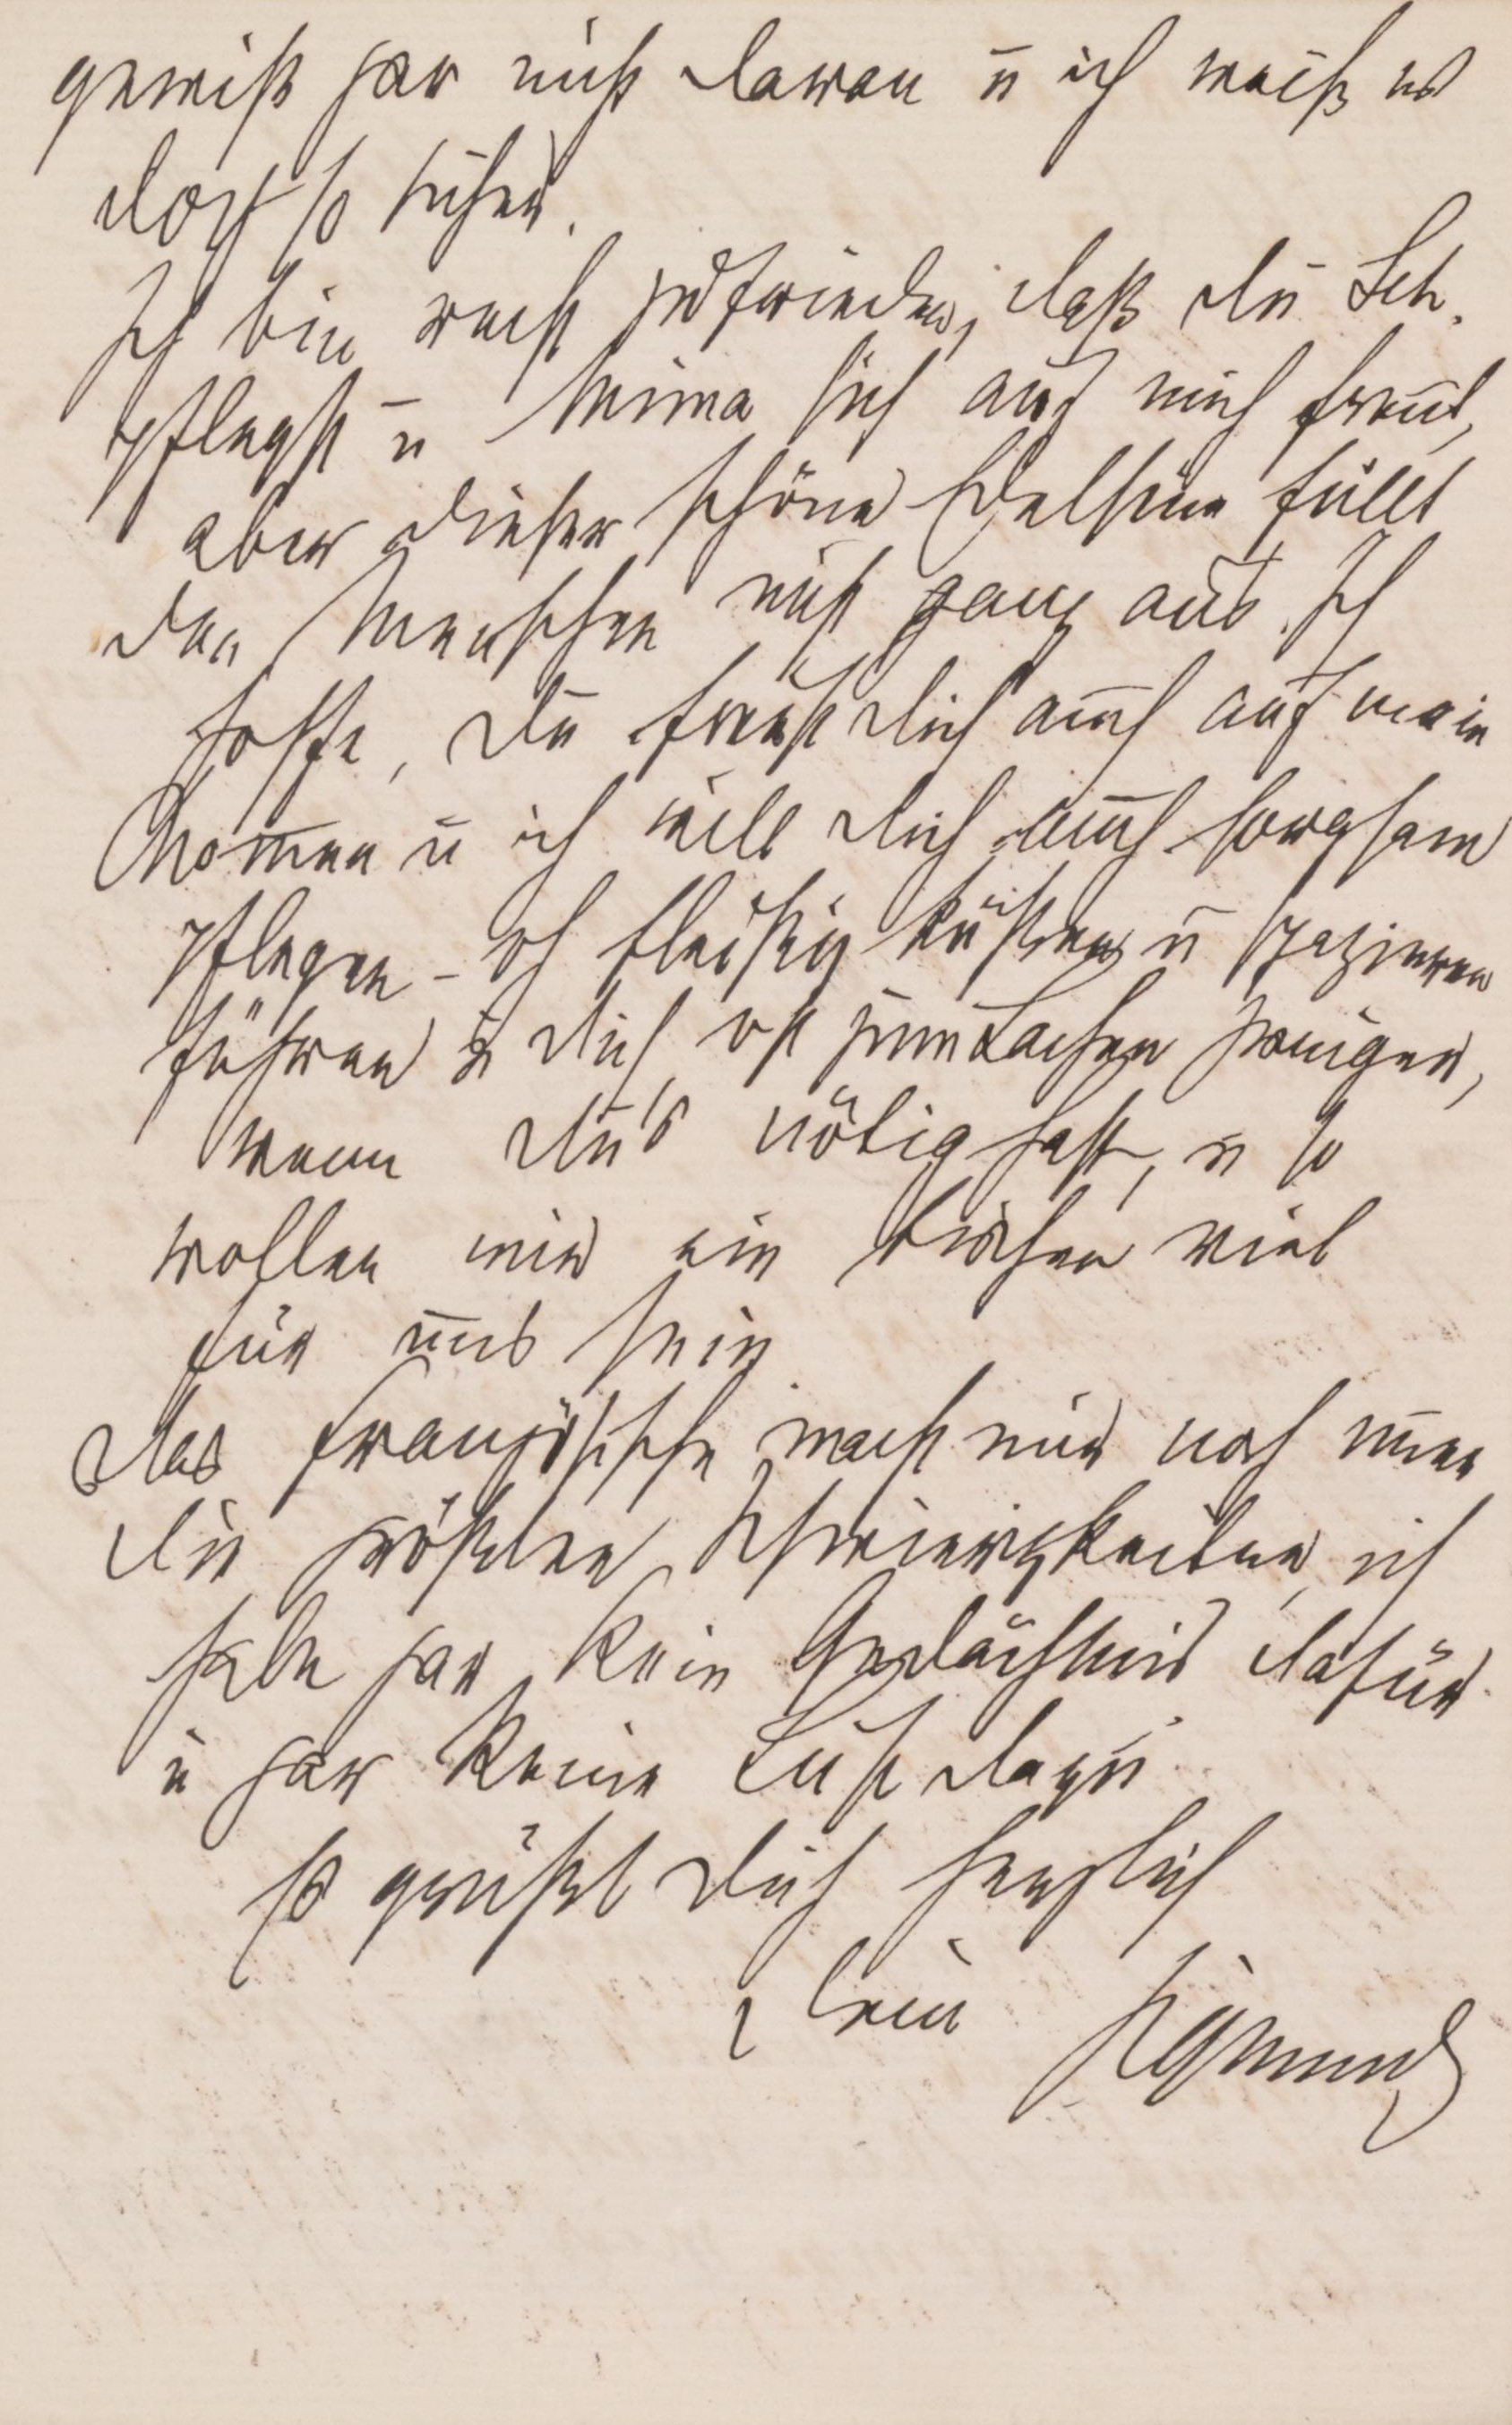 gewiß gar nicht daran u ich weiß es
doch so sicher.
Ich bin recht zufrieden, daß du Sch.
pflegst u Minna sich auf mich freut,
aber dieser schöne Edelsinn füllt
den Menschen nicht ganz aus. Ich
hoffe, du freust dich auch auf mein
Kommen u ich will dich auch sorgsam
pflegen – oft fleißig küssen u spazieren
führen u dich oft zum Lachen bringen,
wenn du's nötig hast, u so
wollen wir ein bischen viel
für uns sein.
Das Französische macht mir noch imer
die größten Schwierigkeiten, ich
habe gar kein Gedächtnis dafür
u gar keine Lust dazu.
So grüßt dich herzlich
dein Sigmund